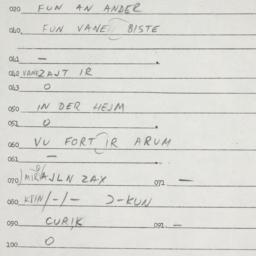 020 FUN AN ANDER
040. FUN VANE( BISTE
041 — .
042 VANEZAJT IR
043 O
050 IN DER HEJM
052 O
060 VU FORT IR ARUM
061 — .
070 AJLN ZAX 072. —
080 /-/- Ɔ-KUN
090 CURIK 091. —
100 O